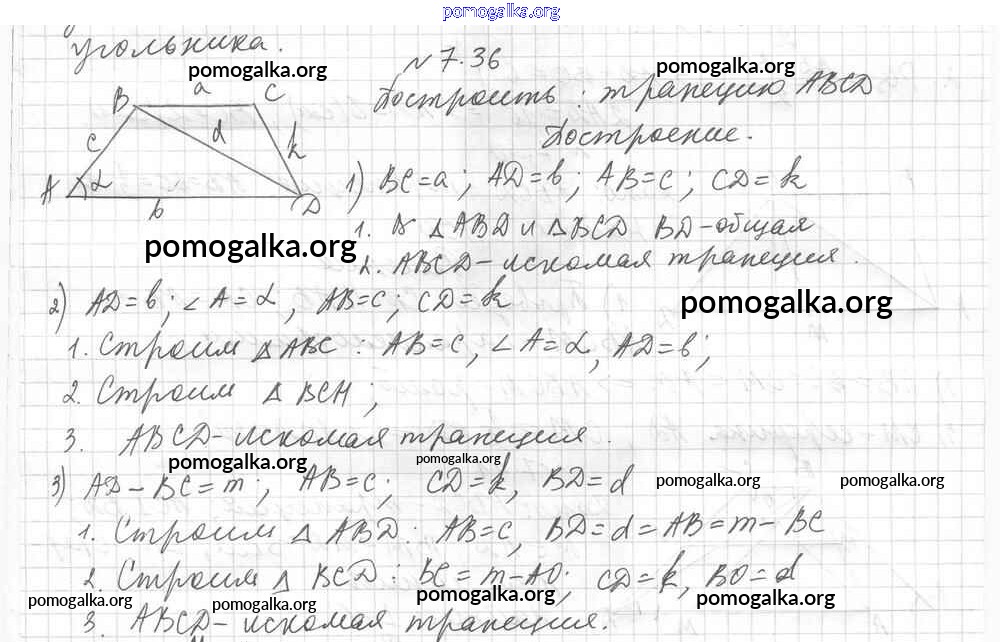 pomogalka.org
угольника.
pomogalka.org
№7.36
pomogalka.org
Построить: трапецию ABCD
Построение.
B a C
c d k
A α b D
1) BC=a; AD=b; AB=c; CD=k
1. В △ABD и △BCD BD-общая
pomogalka.org
2. ABCD-искомая трапеция.
2) AD=b; ∠A=α, AB=c; CD=k
pomogalka.org
1. Строим △ABC: AB=c, ∠A=α, AD=b;
2. Строим △ BCH;
3. ABCD-искомая трапеция.
pomogalka.org
pomogalka.org
3) AD-BC=m; AB=c; CD=k, BD=d
pomogalka.org
pomogalka.org
1. Строим △ ABD: AB=c, BD=d=AB=m-BC
2. Строим △ BCD: BC=m-AD; CD=k, BD=d
pomogalka.org
pomogalka.org
pomogalka.org
pomogalka.org
3. ABCD-искомая трапеция.